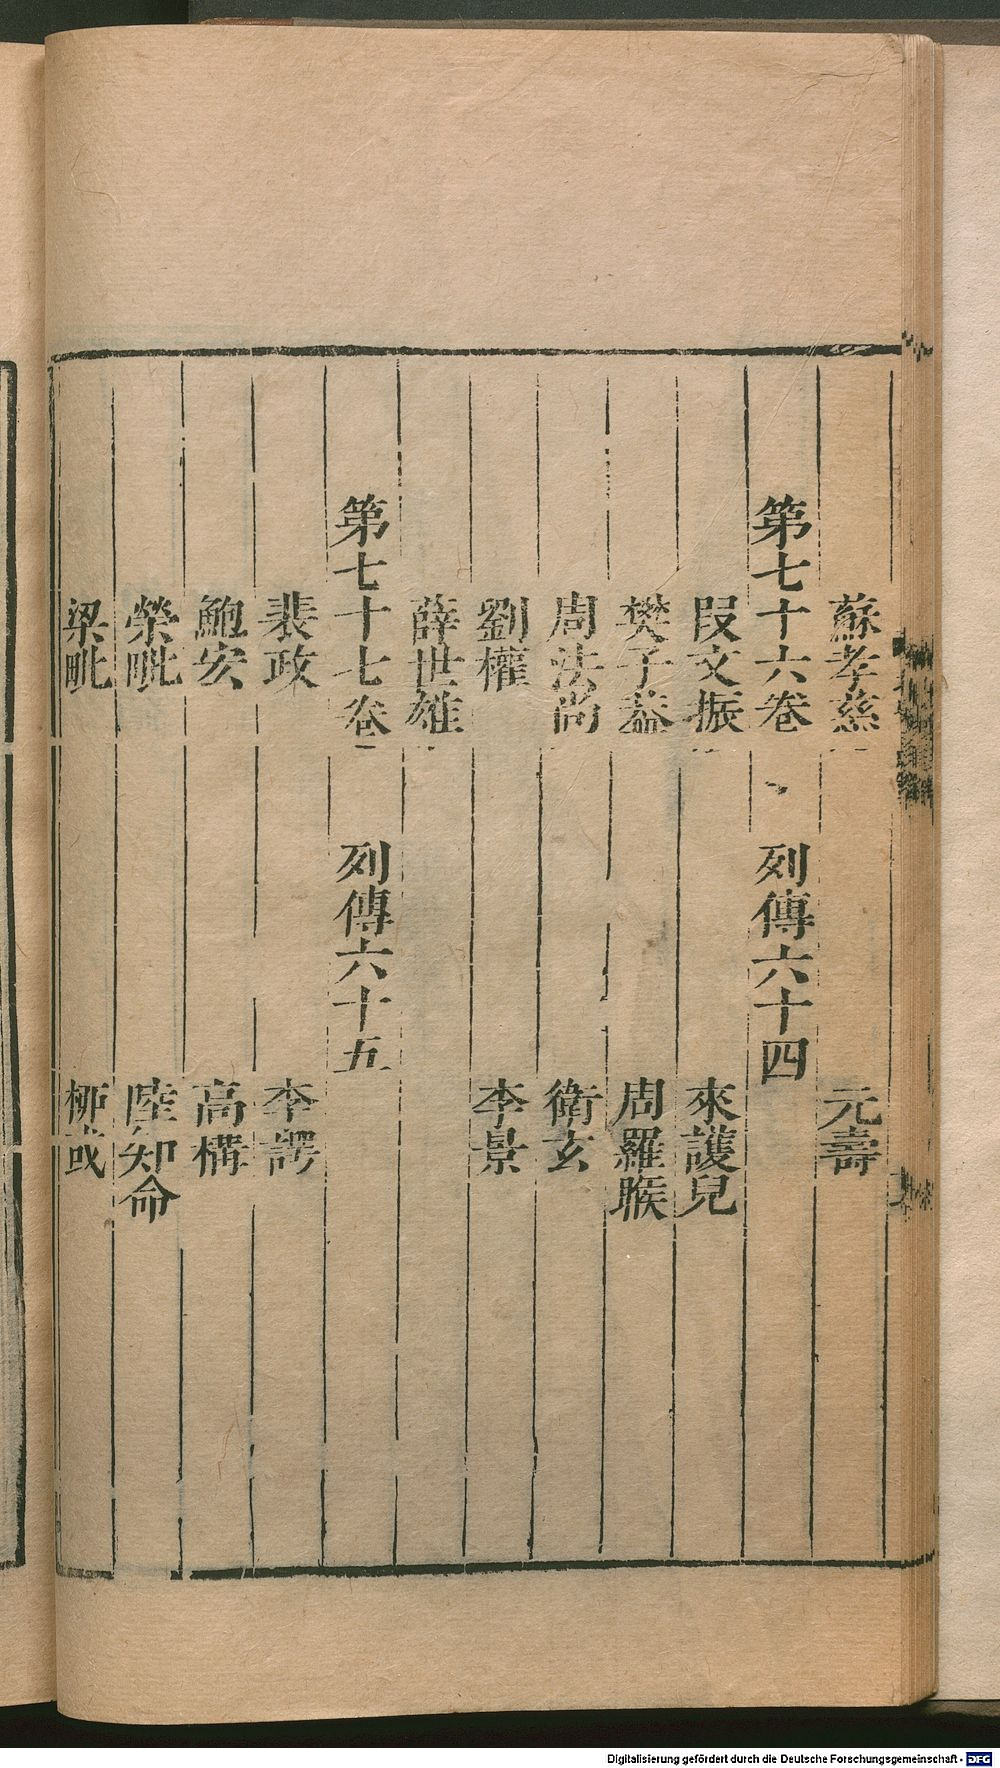 蘇孝慈 元壽
第七十六卷 列傳六十四
段文振 來護兒
樊子蓋 周羅睺
周法尚 衛玄
劉權 李景
薛世雄
第七十七卷 列傳六十五
裴政 李諤
鮑宏 高構
榮毗 陸知命
梁毗 柳彧
Digitalisierung gefördert durch die Deutsche Forschungsgemeinschaft - DFG